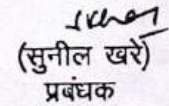 (सुनील खरे)
प्रबंधक